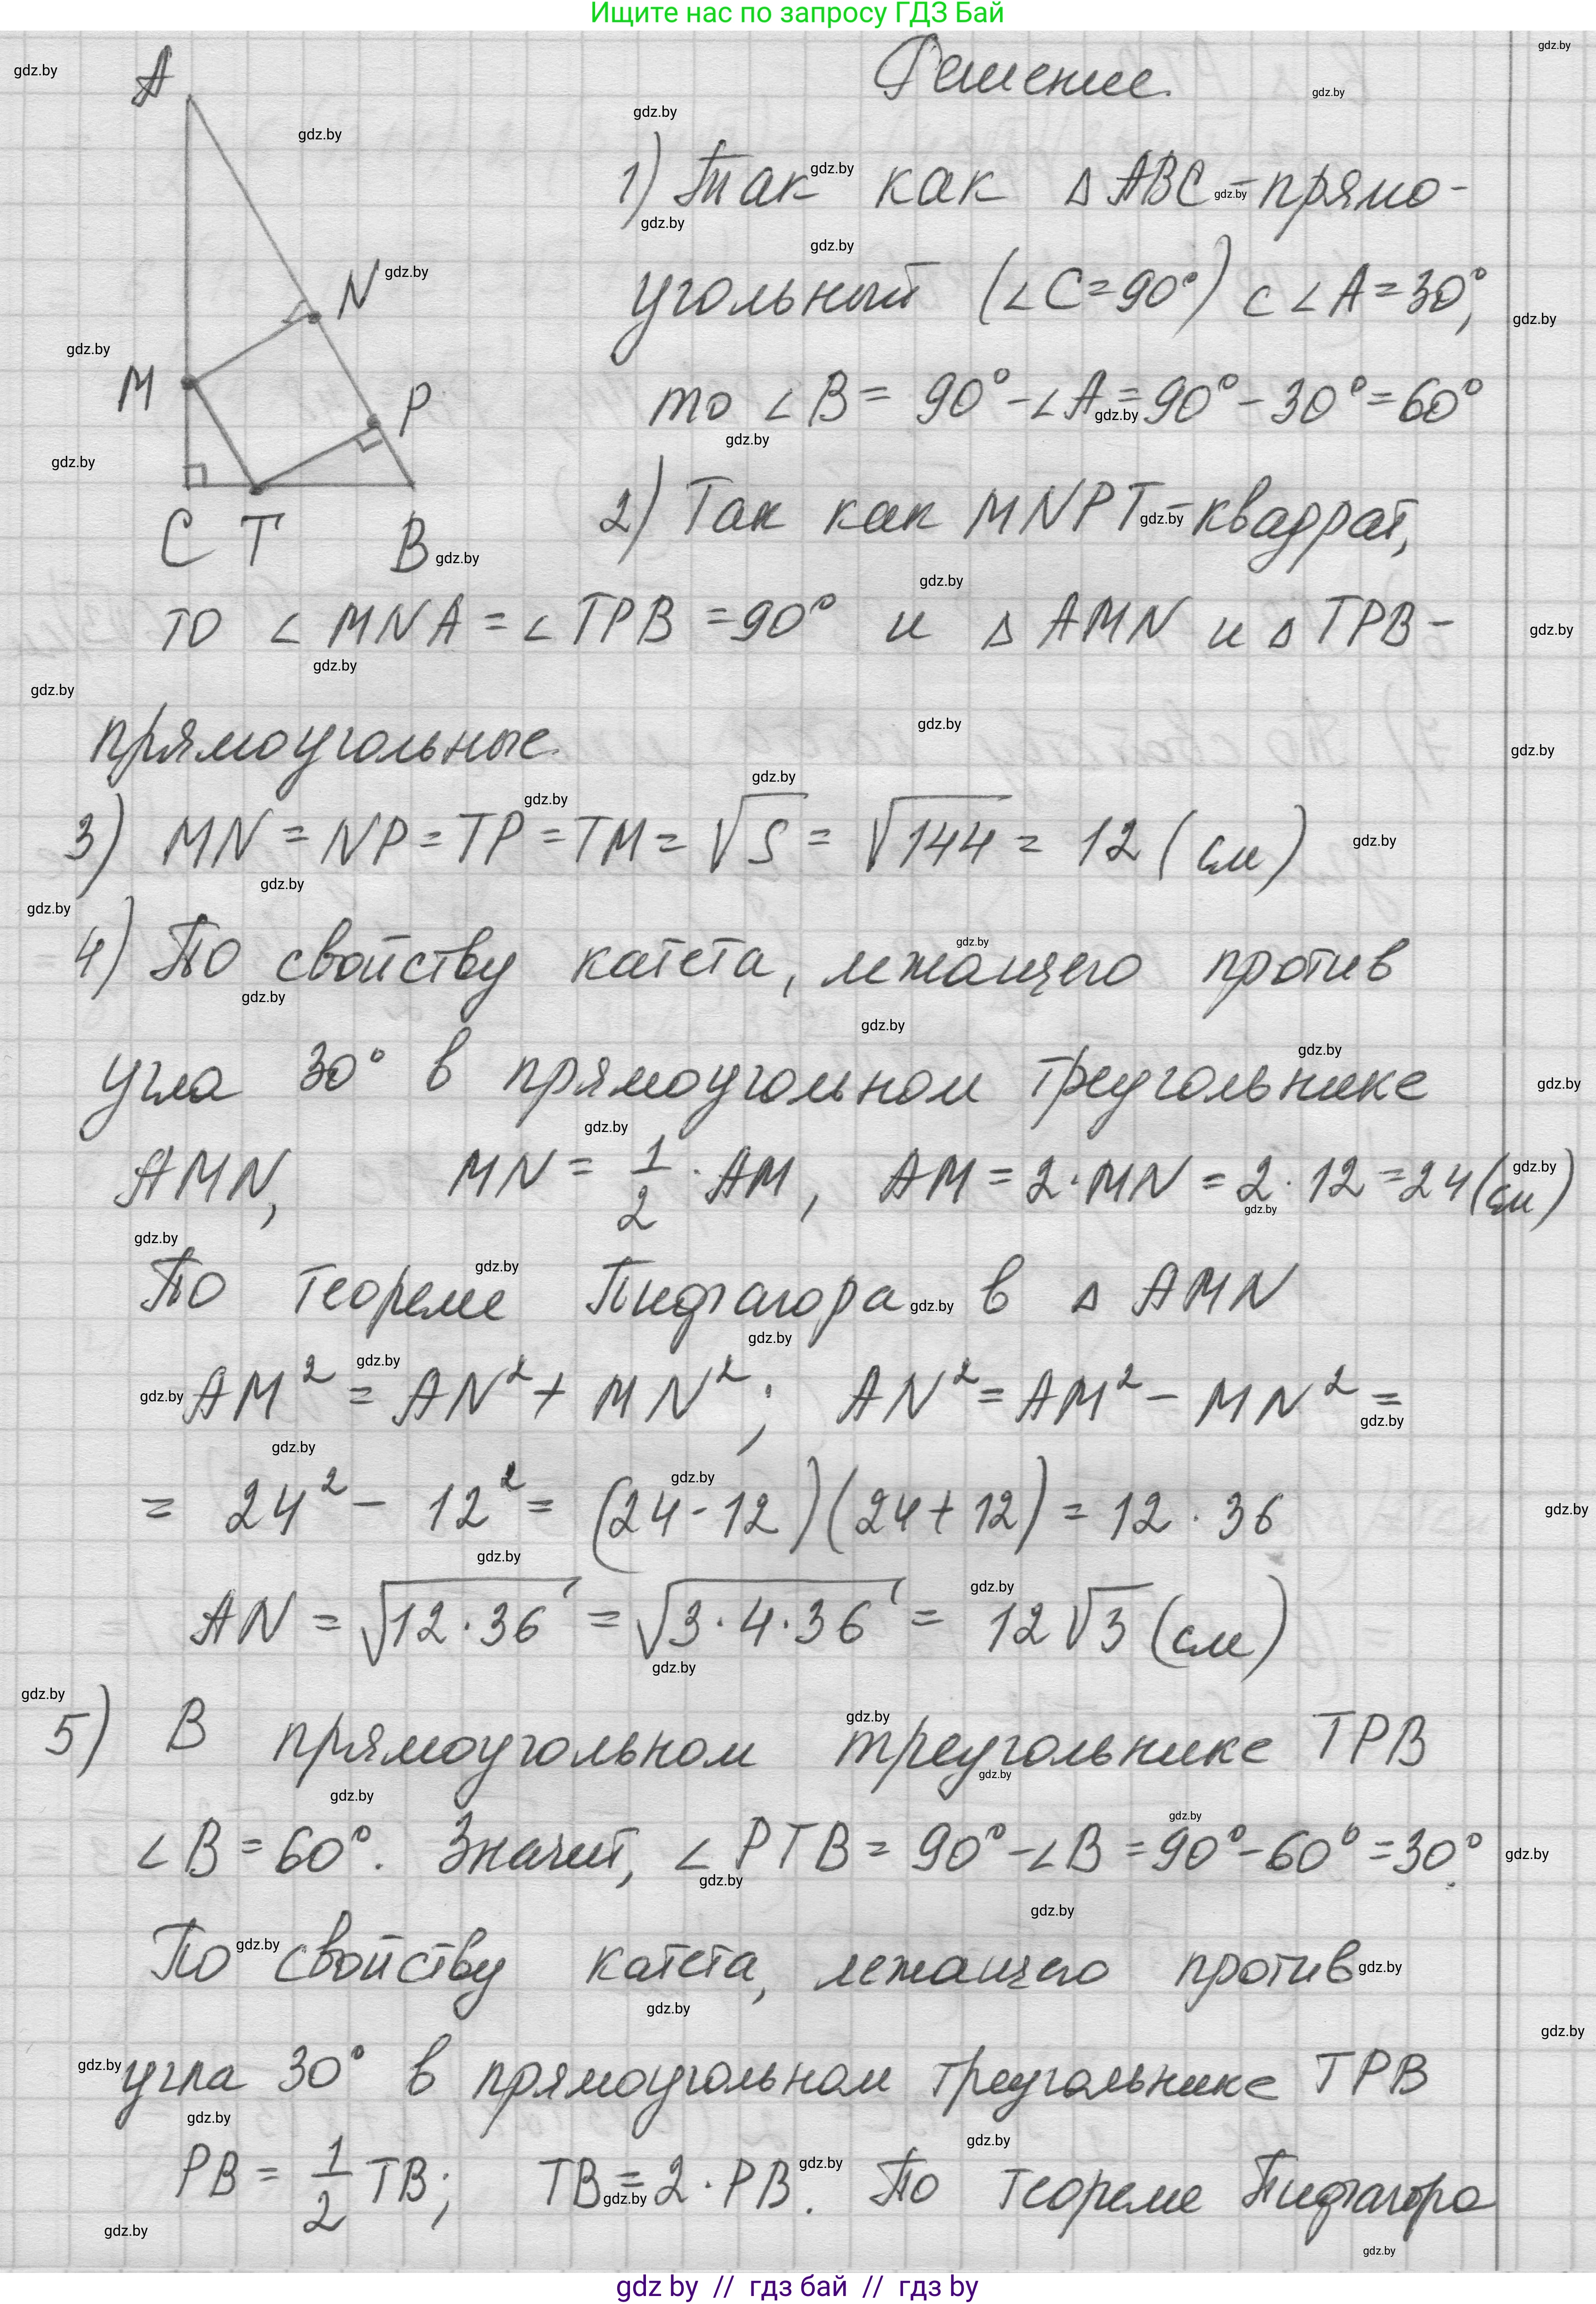 Ищите нас по запросу ГДЗ Бай
Решение.
A
N
M
P
C T B
1) Так как △ ABC - прямо-
угольный (∠C=90°) с ∠A=30°,
то ∠B= 90°-∠A=90°-30°=60°
2) Так как MNPT - квадрат,
то ∠MNA = ∠TPB = 90° и △ AMN и △ TPB -
прямоугольные.
3) MN = NP = TP = TM = √S = √144 = 12 (см)
4) По свойству катета, лежащего против
угла 30° в прямоугольном треугольнике
AMN, MN = 1/2 · AM, AM = 2·MN = 2·12 = 24 (см)
По теореме Пифагора в △ AMN
AM² = AN² + MN²; AN² = AM² - MN² =
= 24² - 12² = (24-12)(24+12) = 12 · 36
AN = √12·36 = √3·4·36 = 12√3 (см)
5) В прямоугольном треугольнике TPB
∠B = 60°. Значит, ∠PTB = 90°-∠B = 90°-60° = 30°.
По свойству катета, лежащего против
угла 30° в прямоугольном треугольнике TPB
PB = 1/2 TB; TB = 2·PB. По теореме Пифагора
gdz by // гдз бай // гдз by